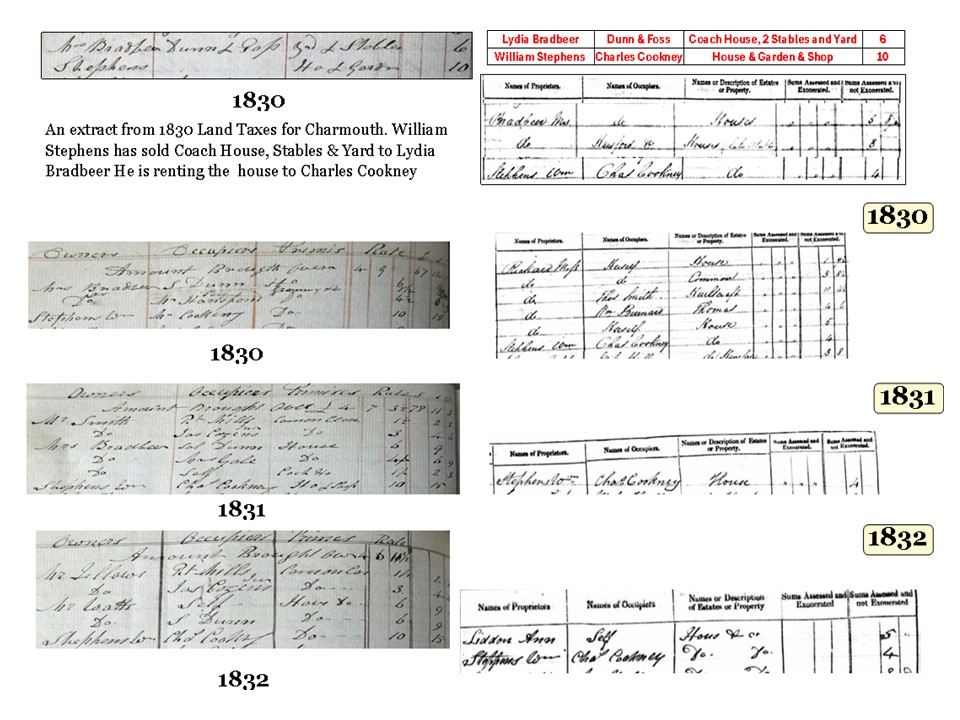 Mrs Bradbeer Dunn & Foss Yd & Stables 6
Stephens Ho & Gardn 10
1830
An extract from 1830 Land Taxes for Charmouth. William
Stephens has sold Coach House, Stables & Yard to Lydia
Bradbeer He is renting the house to Charles Cookney
Lydia Bradbeer Dunn & Foss Coach House, 2 Stables and Yard 6
William Stephens Charles Cookney House & Garden & Shop 10
Names of Proprietors. Names of Occupiers. Names or Description of Estates or Property. Sums Assessed and Exonerated. Sums Assessed and not Exonerated.
Bradbeer Mrs. do House 5
do House 3
Stephens Wm Chas Cookney do 4
1830
Owners Occupiers Premis Rate
Amount Brought Over 4 9
Mrs Bradbeer S Dunn
Do Mr
Stephens Wm Mr Do 10
1830
Names of Proprietors. Names of Occupiers. Names or Description of Estates or Property. Sums Assessed and Exonerated. Sums Assessed and not Exonerated.
House
do do Common
do Thos Smith
do Wm Thomas
do Herself House 5
Stephens Wm Chas Cookney do 4
1831
Owners Occupiers Premises Rate
Amount Brought Over 4 7
Mr Smith Rt Mills Common Close
Do Jas Cozens Do 3
Mrs Bradbeer Saml Dunn House 6
Do Gale Do
Do Self Coach Ho
Stephens Wm Chas Cookney Ho & Shop 10
1831
Names of Proprietors. Names of Occupiers. Names or Description of Estates or Property. Sums Assessed and Exonerated. Sums Assessed and not Exonerated.
Stephens Wm Chas Cookney House 4
1832
Owners Occupiers Premes Rate
Amount Brought Over 6
Mr Rt Mills
Do Jas Cozens Do 3
Mr Self House Do 6
Do S Dunn Do
Stephens Wm Chas Do 10
1832
Names of Proprietors Names of Occupiers Names or Description of Estates or Property Sums Assessed and Exonerated Sums Assessed and not Exonerated
Liddon Ann Self Hous & co 5
Stephens Wm Chas Cookney Do. Do. 4